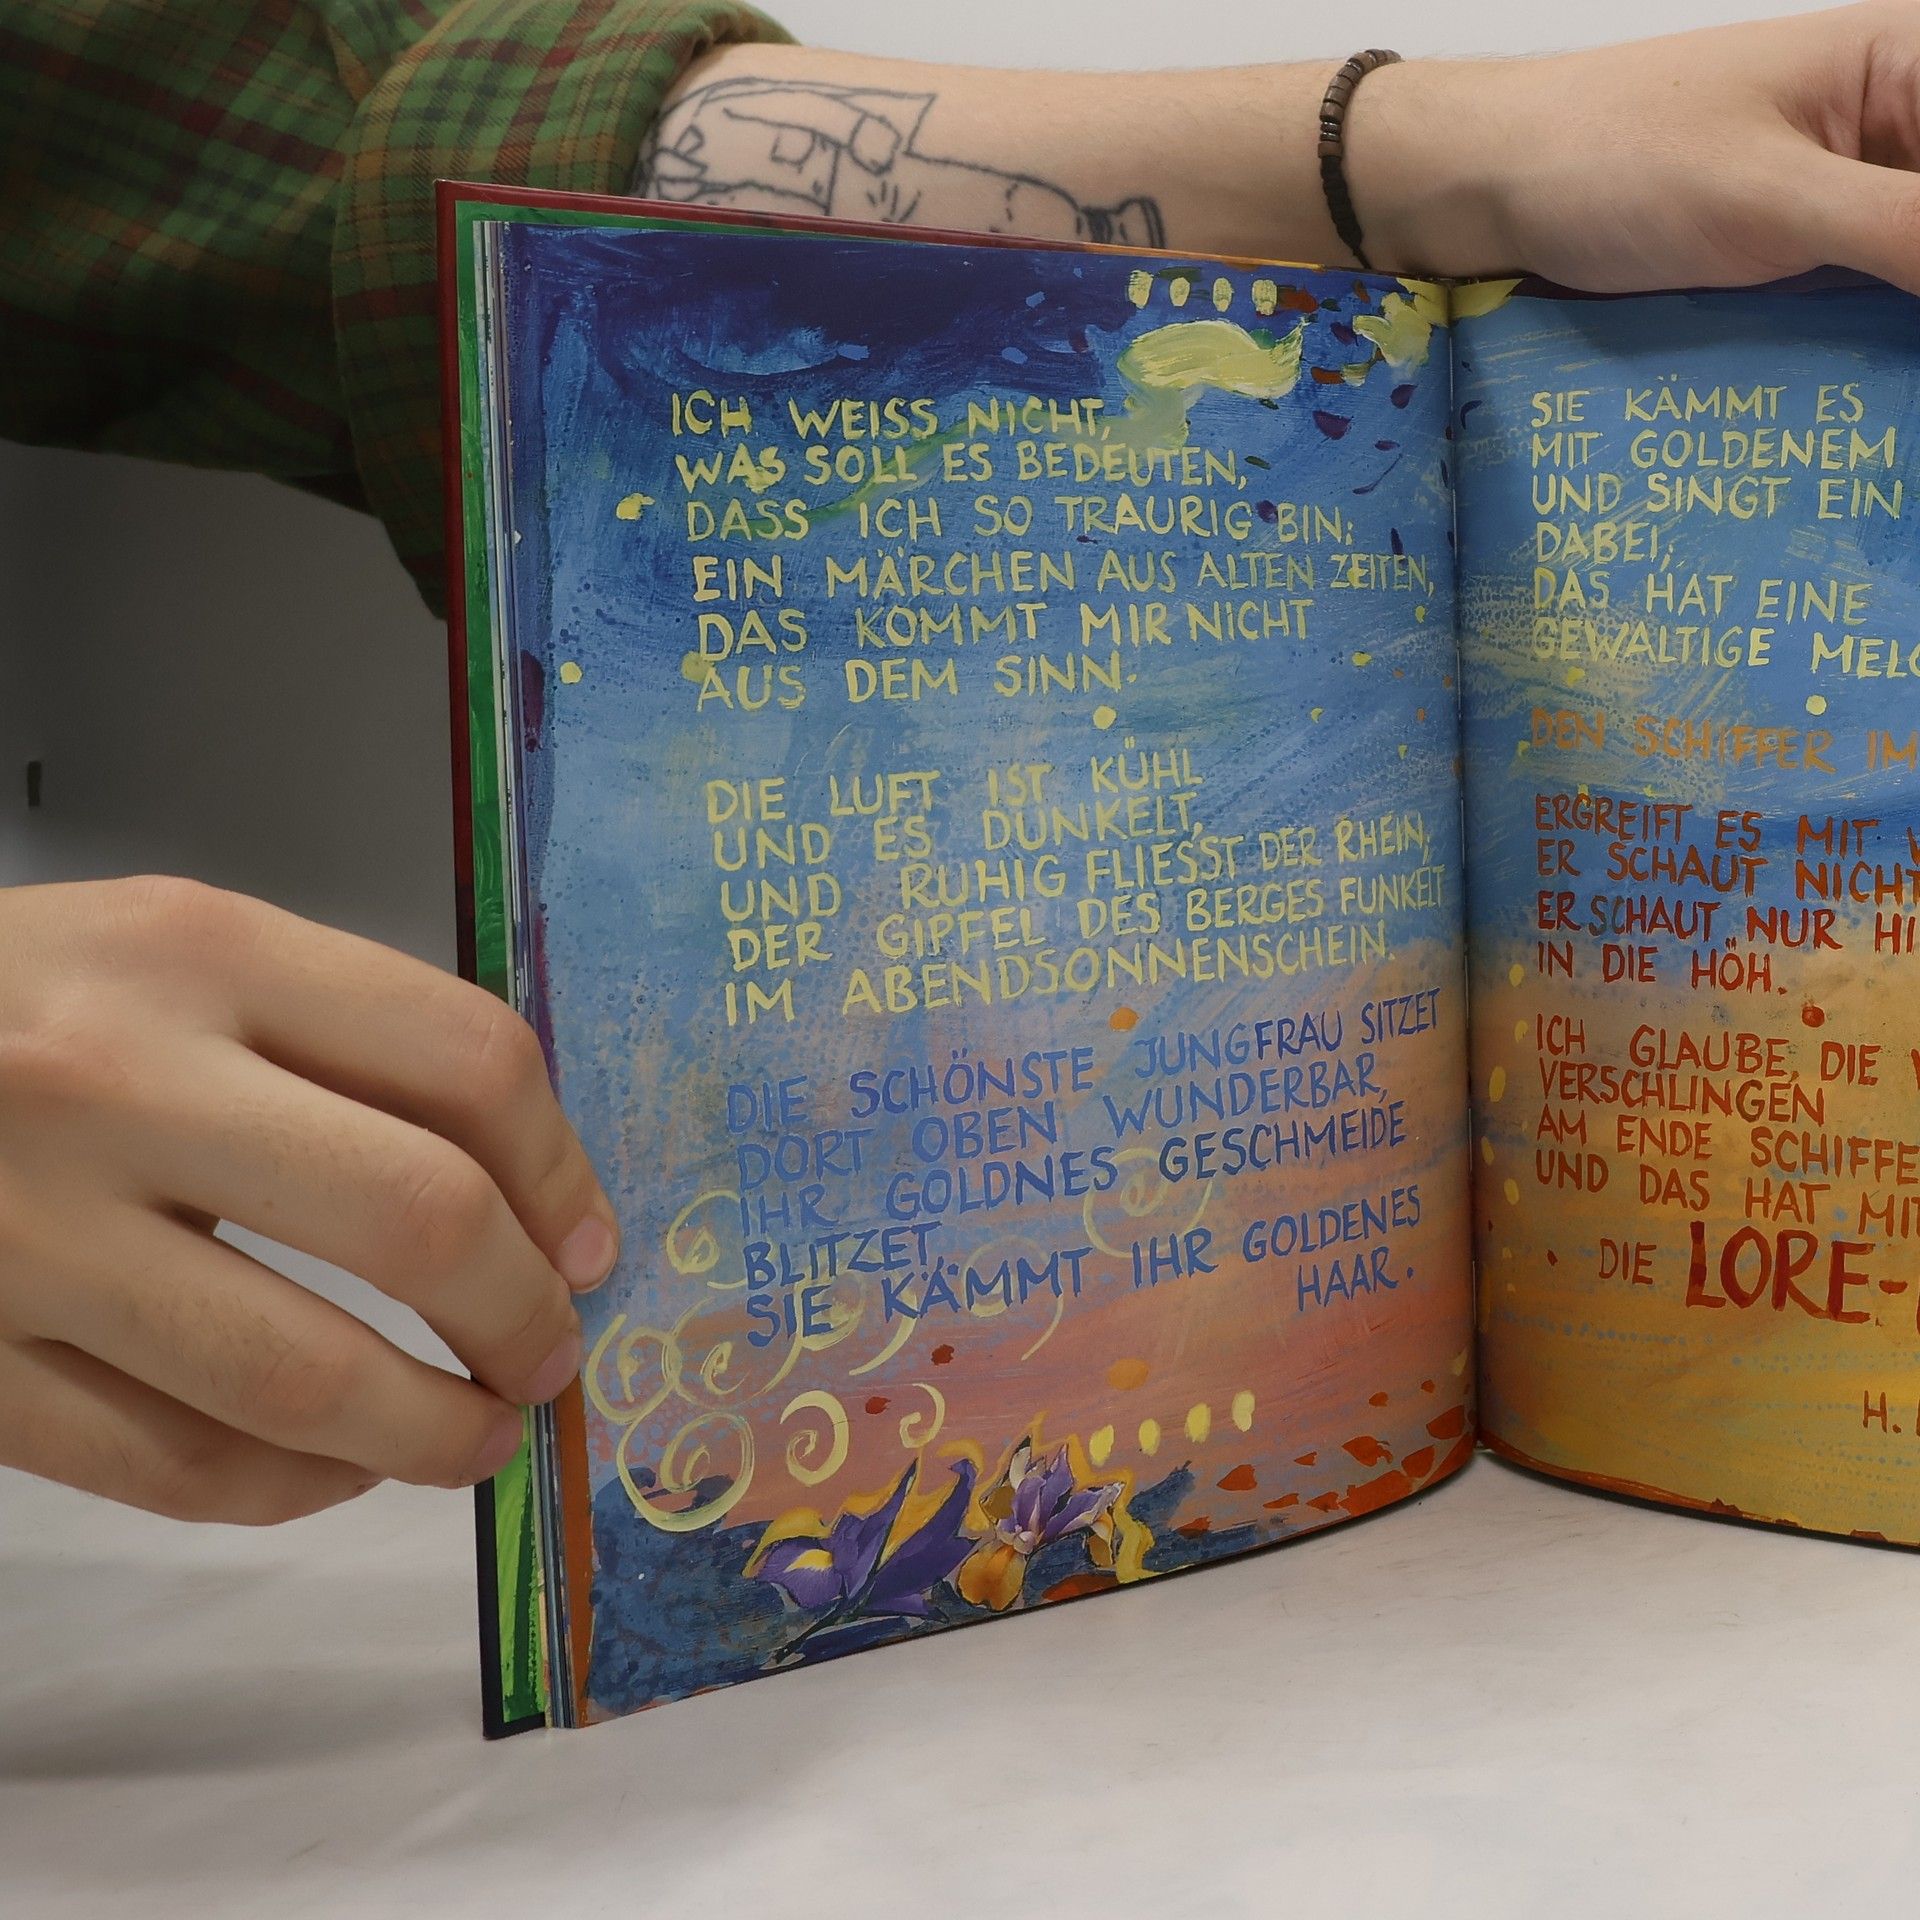 ICH WEISS NICHT,
WAS SOLL ES BEDEUTEN,
DASS ICH SO TRAURIG BIN:
EIN MÄRCHEN AUS ALTEN ZEITEN,
DAS KOMMT MIR NICHT
AUS DEM SINN.
DIE LUFT IST KÜHL
UND ES DUNKELT,
UND RUHIG FLIESST DER RHEIN;
DER GIPFEL DES BERGES FUNKELT
IM ABENDSONNENSCHEIN.
DIE SCHÖNSTE JUNGFRAU SITZET
DORT OBEN WUNDERBAR,
IHR GOLDNES GESCHMEIDE
BLITZET,
SIE KÄMMT IHR GOLDENES
HAAR.
SIE KÄMMT ES
MIT GOLDENEM
UND SINGT EIN
DABEI;
DAS HAT EINE
GEWALTIGE
DEN SCHIFFER IM
ERGREIFT ES MIT
ER SCHAUT NICHT
ER SCHAUT NUR
IN DIE HÖH.
ICH GLAUBE, DIE
VERSCHLINGEN
AM ENDE
UND DAS HAT
DIE LORE-
H.